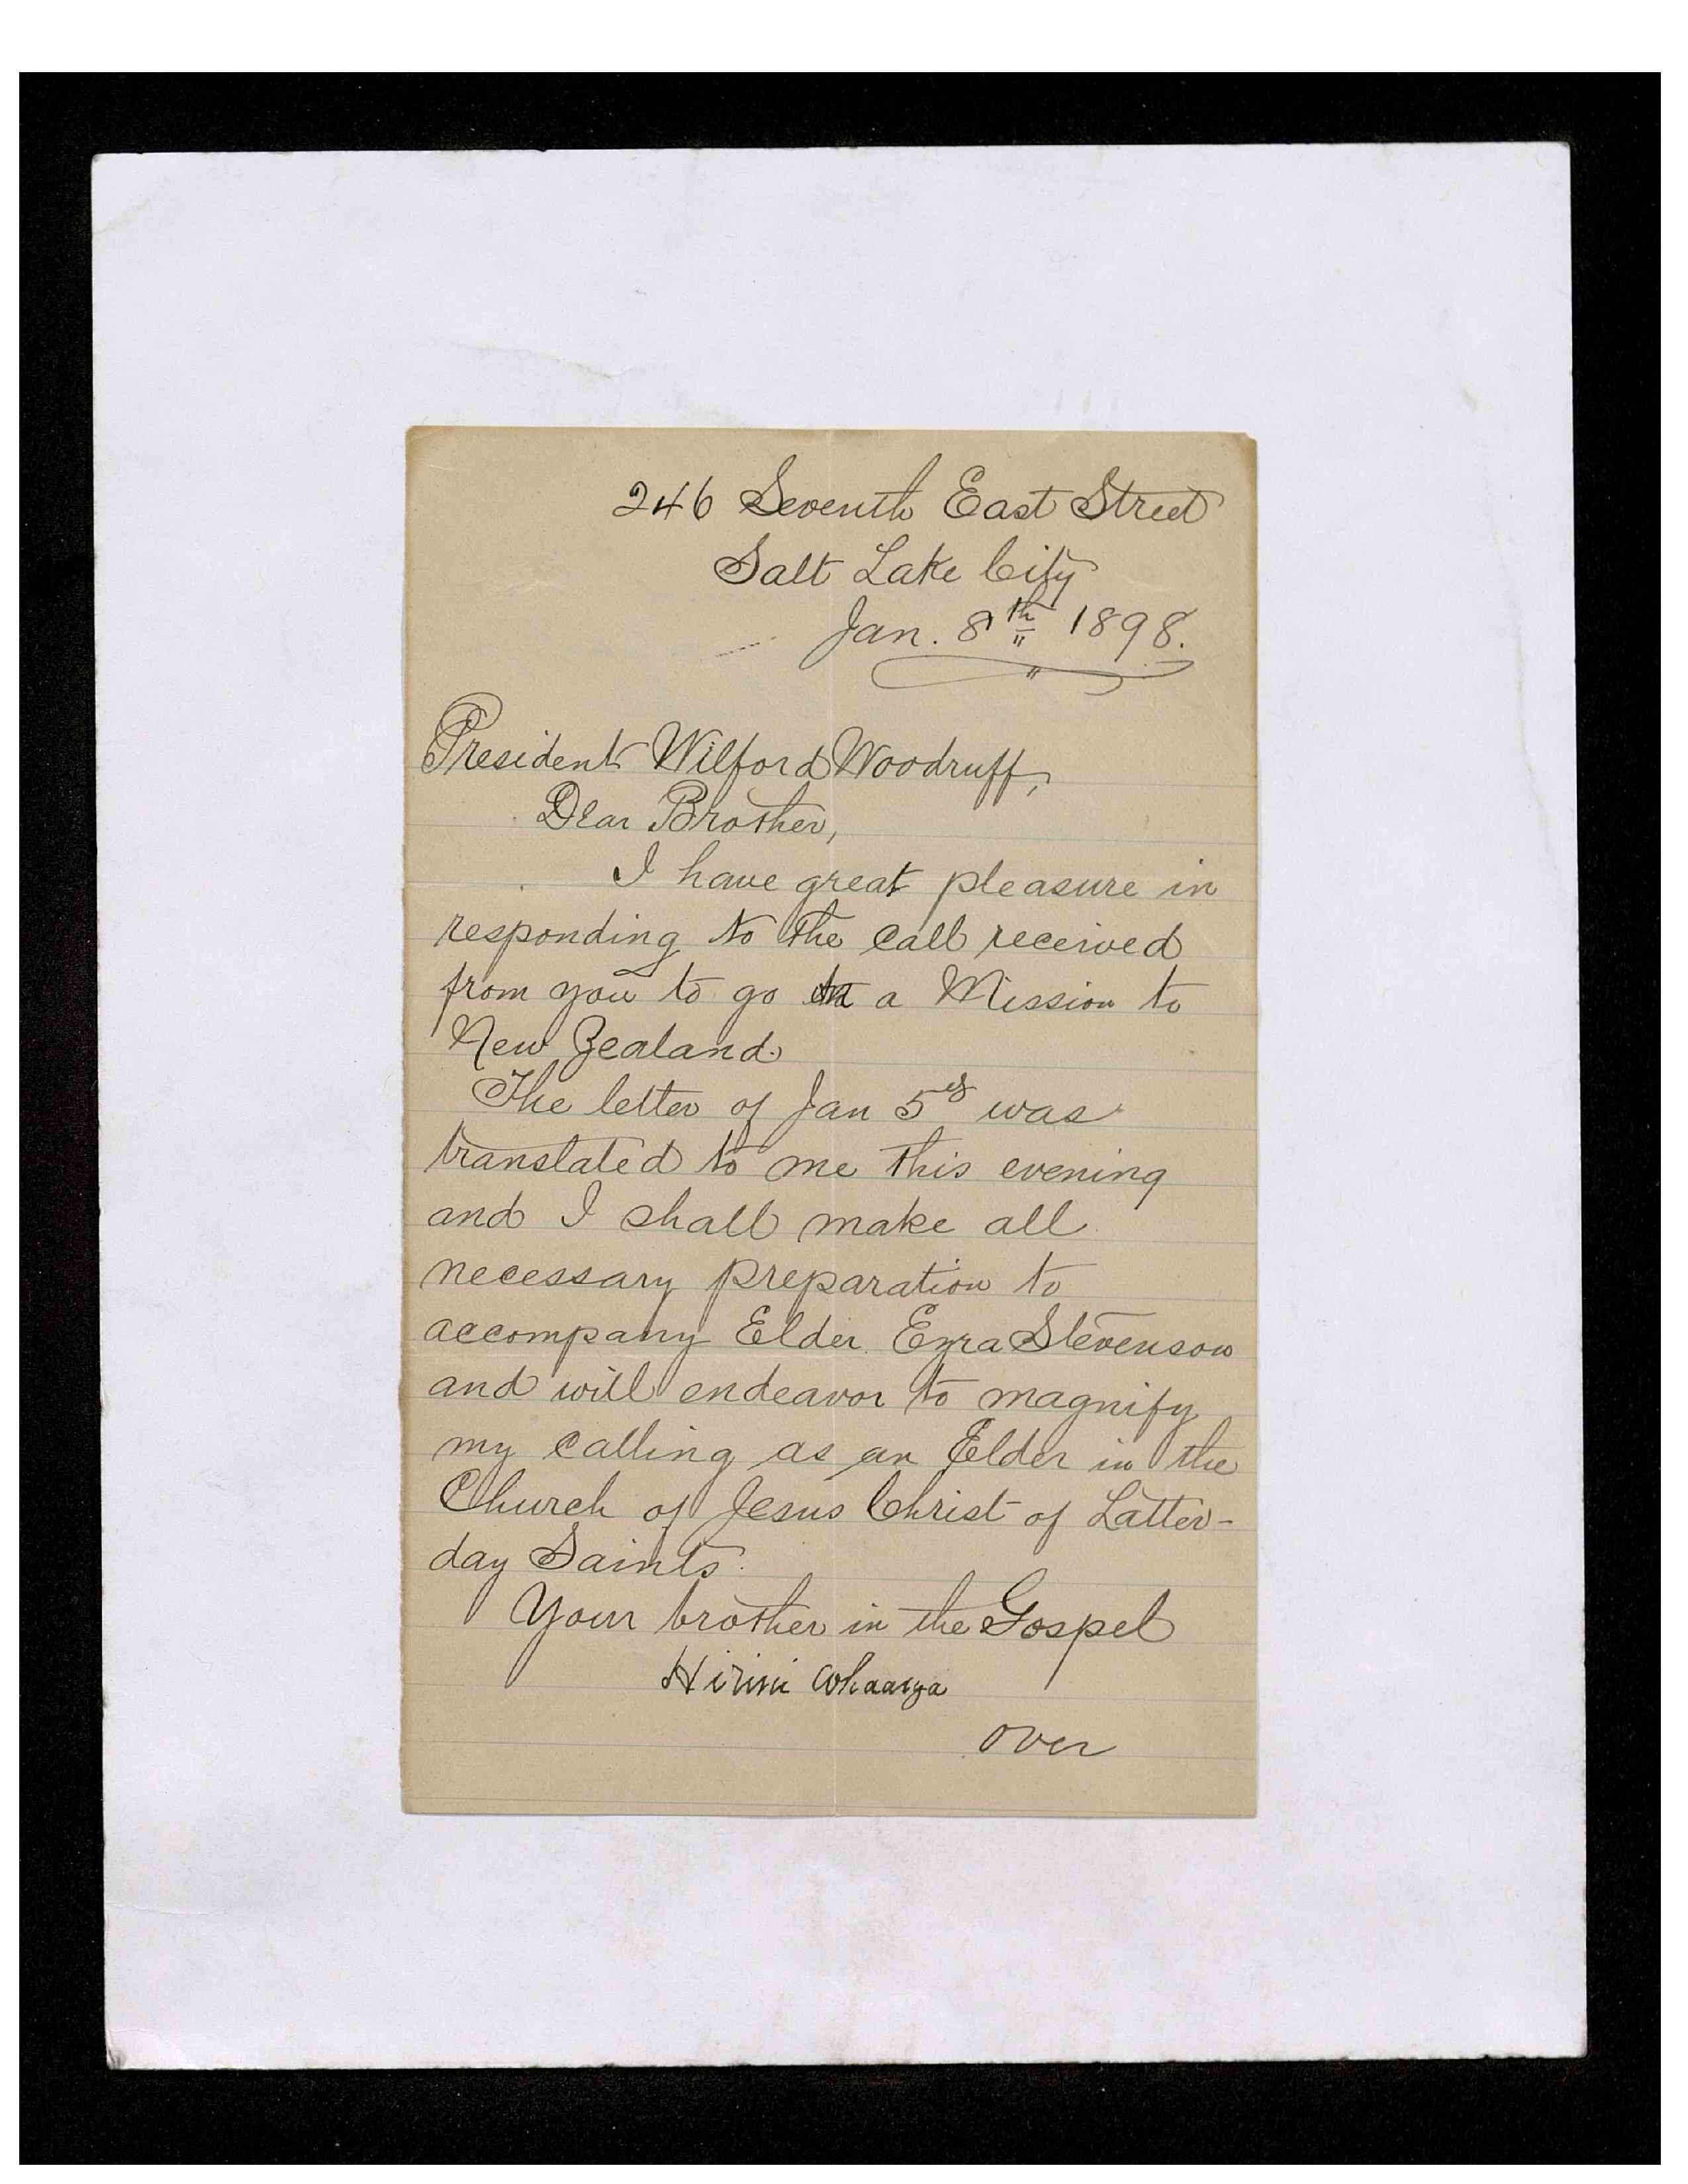 246 Seventh East Street
Salt Lake City
Jan. 8th 1898.
President Wilford Woodruff,
Dear Brother,
I have great pleasure in
responding to the call received
from you to go on a Mission to
New Zealand.
The letter of Jan 5th was
translated to me this evening
and I shall make all
necessary preparation to
accompany Elder Ezra Stevenson
and will endeavor to magnify
my calling as an Elder in the
Church of Jesus Christ of Latter-
day Saints.
Your brother in the Gospel
Hirini Whaanga
over